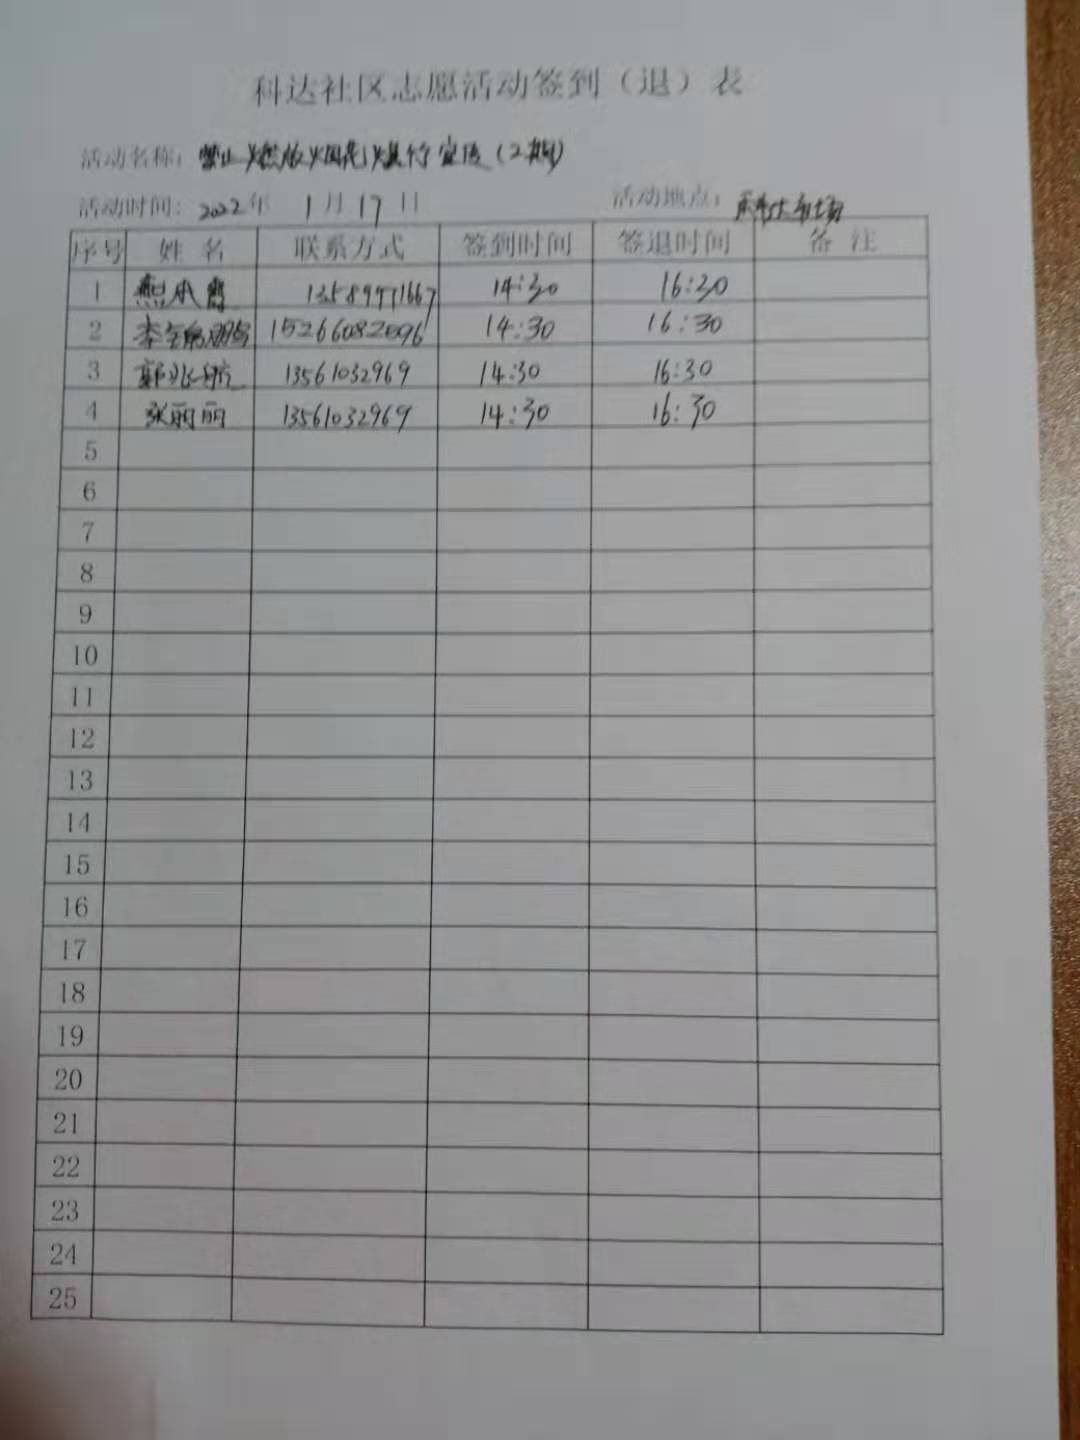 科达社区志愿活动签到（退）表
活动名称：禁止燃放烟花爆竹宣传（2期）
活动时间：2022年 1月17日 活动地点：
序号 姓名 联系方式 签到时间 签退时间 备注
1 14:30 16:30
2 15266082096 14:30 16:30
3 郭兆航 13561032969 14:30 16:30
4 张丽丽 13561032969 14:30 16:30
5
6
7
8
9
10
11
12
13
14
15
16
17
18
19
20
21
22
23
24
25